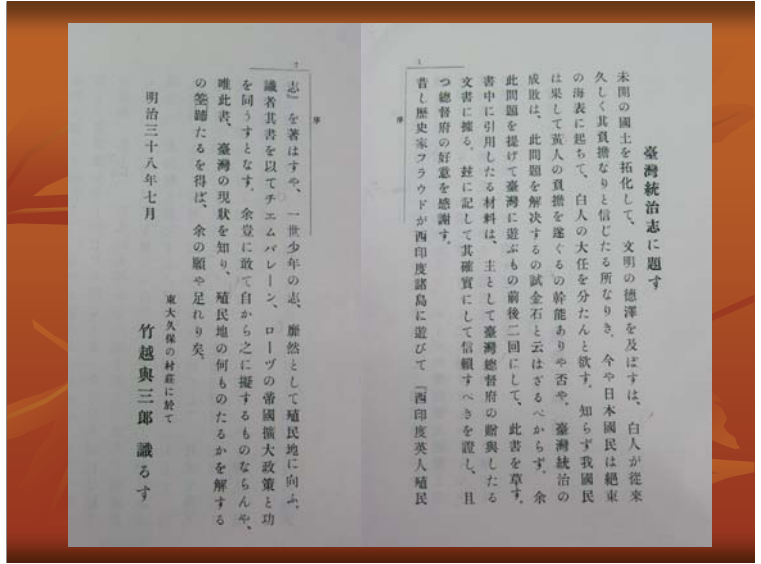 臺灣統治志に題す
未開の國土を拓化して、文明の德澤を及ぼすは、白人が從來
久しく其負擔なりと信じたる所なりき、今や日本國民は絕東
の海表に起ちて、白人の大任を分たんと欲す。知らず我國民
は果して黃人の負擔を遂ぐるの幹能ありや否や、臺灣統治の
成敗は、此問題を解決するの試金石と云はざるべからず。余
此問題を提げて臺灣に遊ぶもの前後二回にして、此書を草す。
書中に引用したる材料は、主として臺灣總督府の贈與したる
文書に據る。玆に記して其確實にして信賴すべきを證し、且
つ總督府の好意を感謝す。
昔し歷史家フラウドが西印度諸島に遊びて『西印度英人殖民
序
一
志』を著はすや、一世少年の志、靡然として殖民地に向ふ、
識者其書を以てチエムバレーン、ローヅの帝國擴大政策と功
を同うすとなす。余豈に敢て自から之に擬するものならんや、
唯此書、臺灣の現狀を知り、殖民地の何ものたるかを解する
の筌蹄たるを得ば、余の願や足れり矣。
明治三十八年七月
東大久保の村莊に於て
竹越與三郎 識るす
序